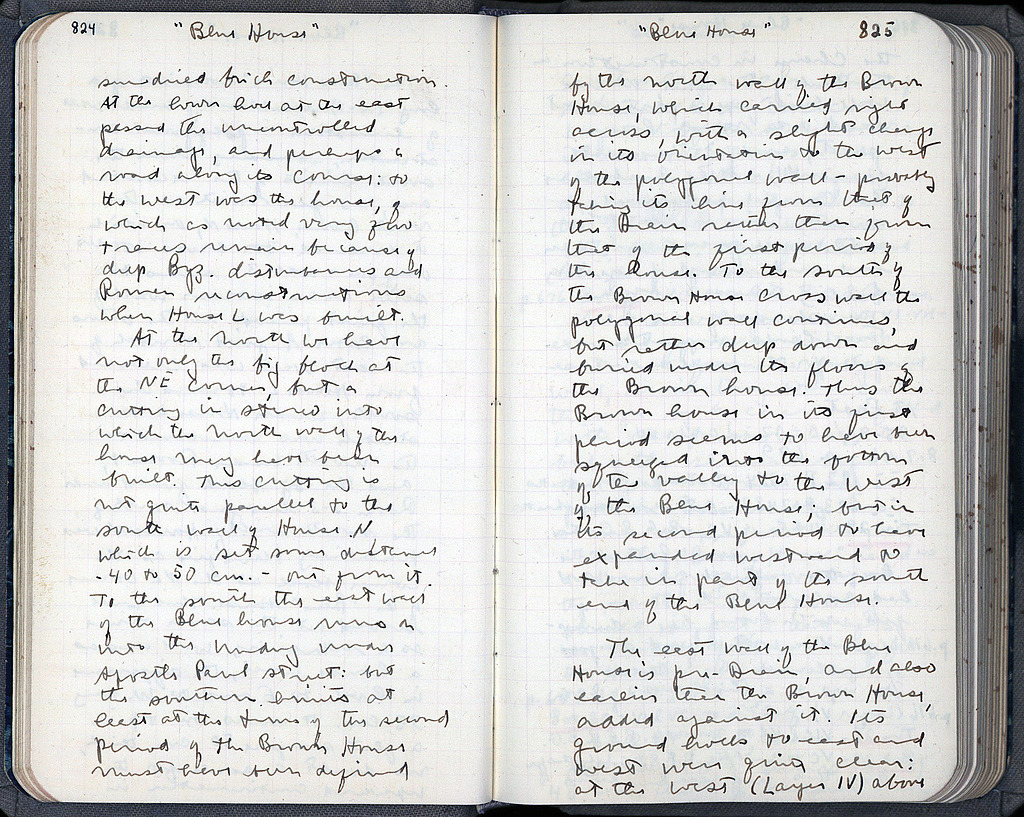 824 "Blue House"
sun-dried brick construction.
At the lower level at the east
passed the uncontrolled
drainage, and perhaps a
road along its course: to
the west was the house, of
which as noted very few
traces remain because of
deep Byz. disturbances and
Roman reconstructions
when House L was built.
At the north we have
not only the big block at
the NE corner, but a
cutting in stereo into
which the north wall of the
house may have been
built. This cutting is
not quite parallel to the
south wall of House N,
which is set some distance
- 40 to 50 cm. - out from it.
To the south the east wall
of the Blue house runs on
into the unding under
Apostle Paul street: but
the southern limits at
least at the time of the second
period of the Brown House
must have been defined
"Blue House" 825
by the north wall of the Brown
House, which carried right
across, with a slight change
in its orientation to the west
of the polygonal wall - probably
taking its line from that of
the Drain rather than from
that of the first period of
the house. To the south of
the Brown House cross wall the
polygonal wall continues,
but rather deep down and
buried under the floors of
the Brown house. Thus the
Brown house in its first
period seems to have been
squeezed into the bottom
of the valley to the west
of the Blue House; but in
its second period to have
expanded westward to
take in part of the south
end of the Blue House.
The east wall of the Blue
House is pre-Drain, and also
earlier than the Brown House,
added against it. Its
ground levels to east and
west were quite clear:
at the west (Layer IV) above